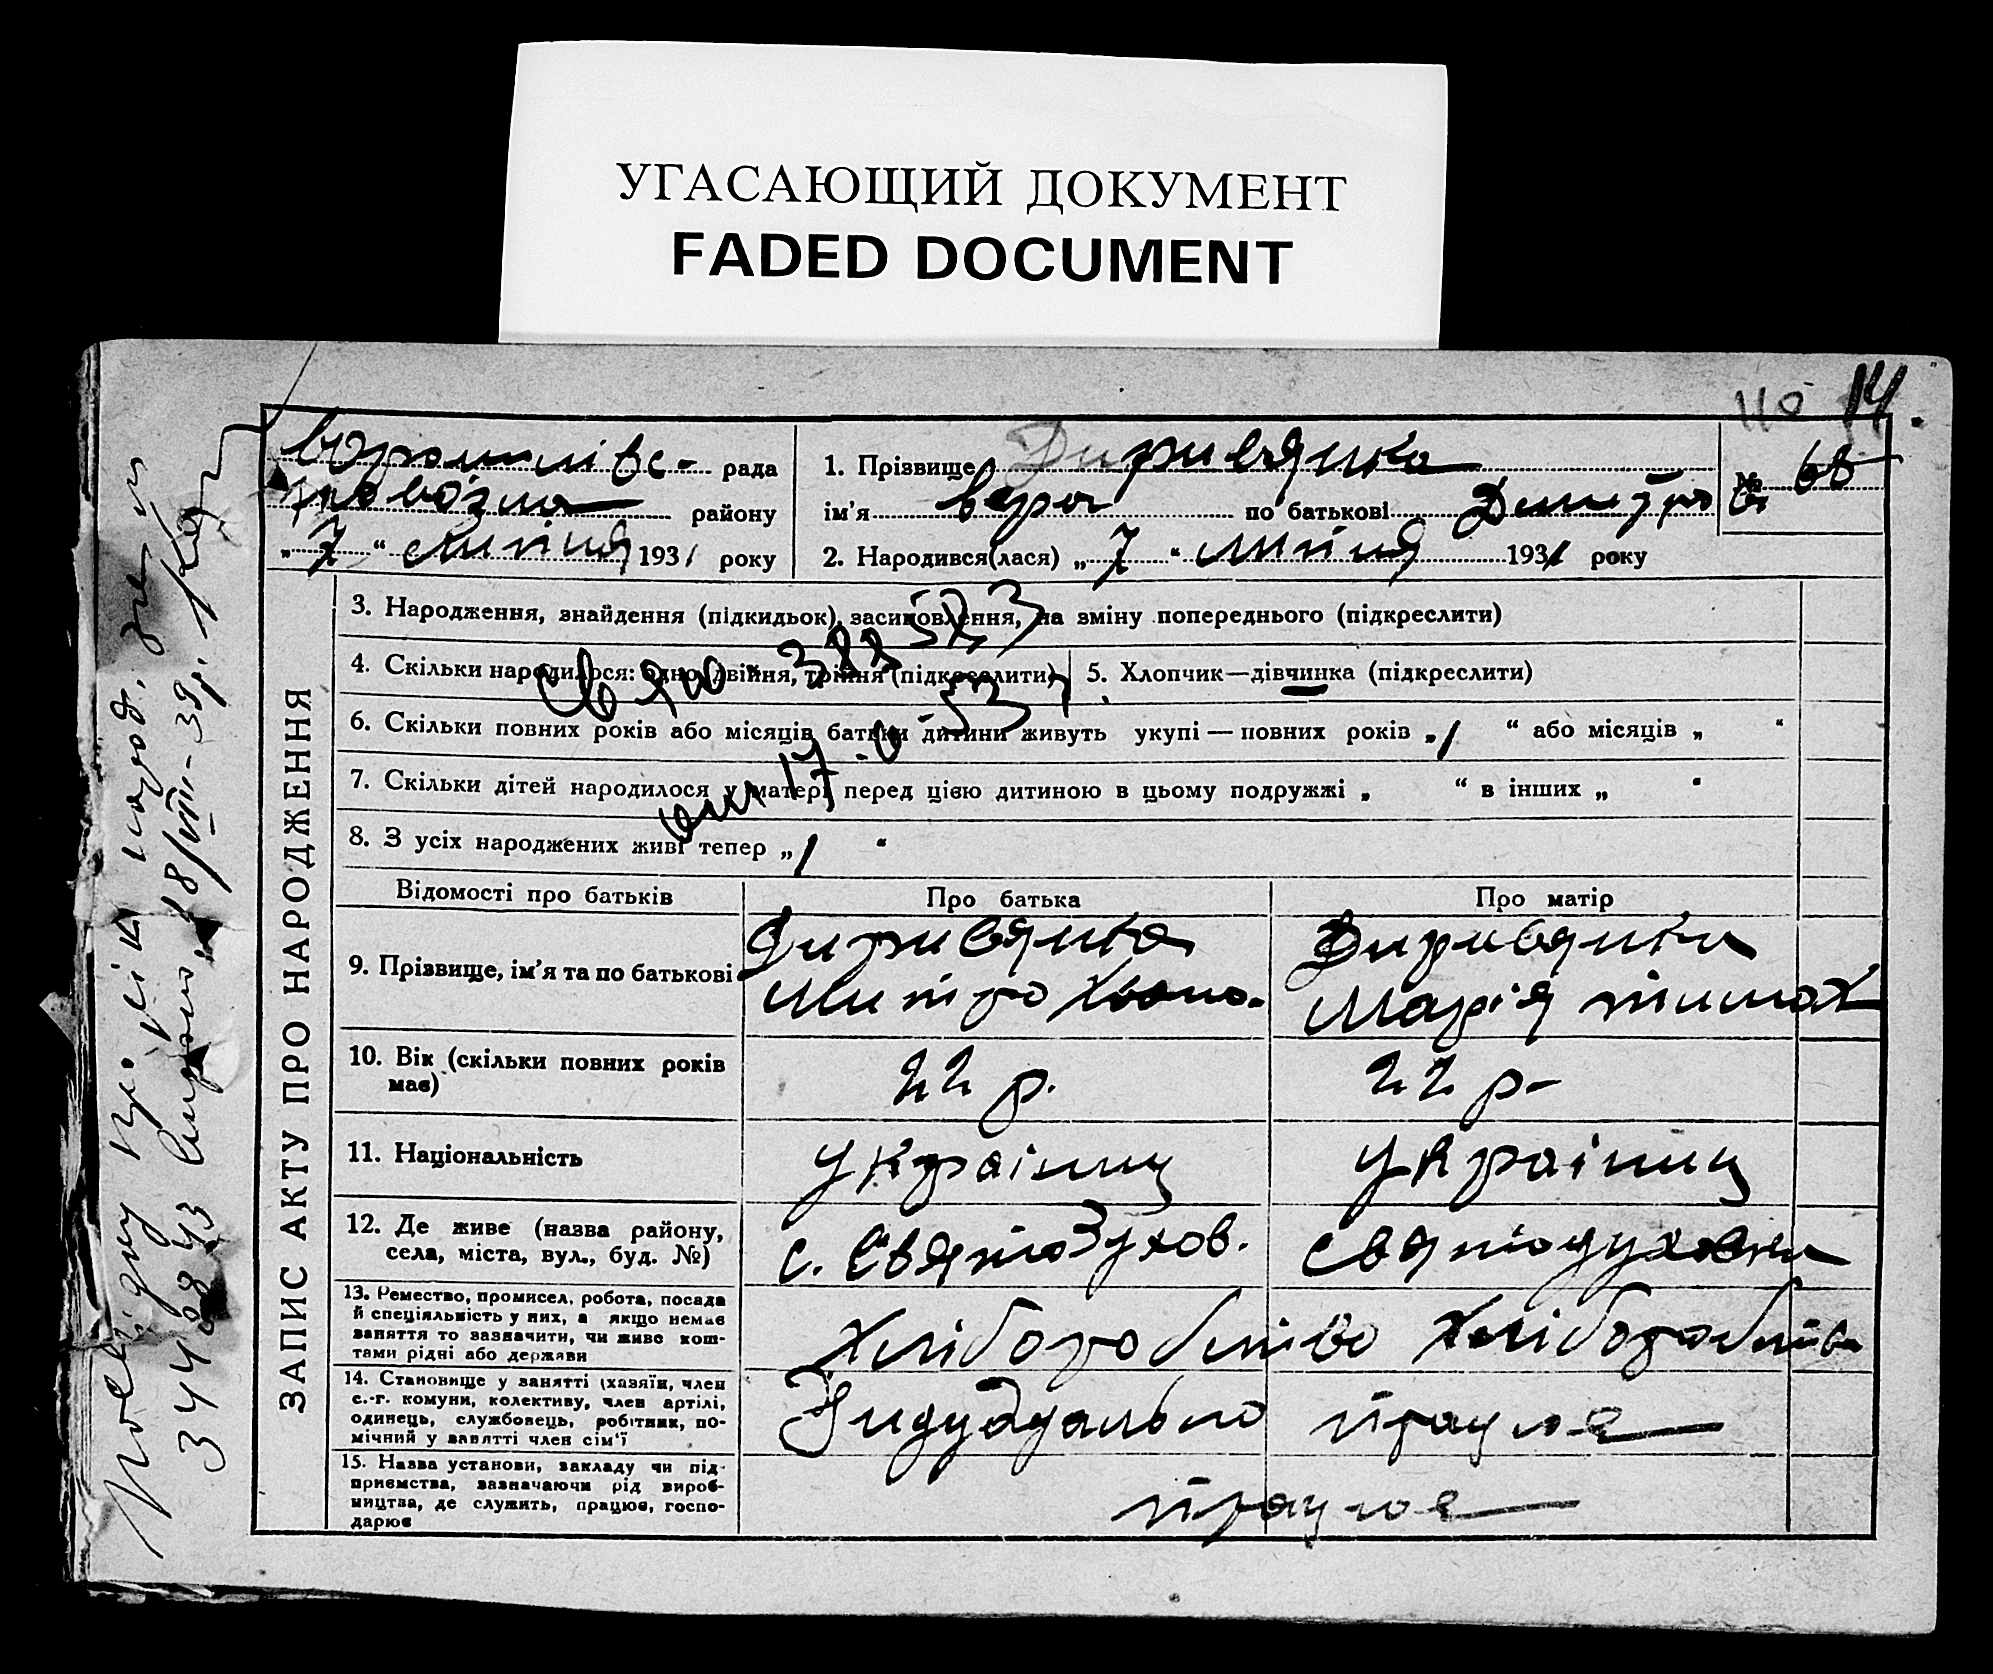 УГАСАЮЩИЙ ДОКУМЕНТ
FADED DOCUMENT
14.
рада
району
„ 7 “ Липня 1931 року
1. Прізвище Диривянка
ім’я Вера по батькові
№ 68
2. Народився(лася) „ 7 “ липня 1931 року
ЗАПИС АКТУ ПРО НАРОДЖЕННЯ
3. Народження, знайдення (підкидьок), засиновлення, на зміну попереднього (підкреслити)
4. Скільки народилося: одно, двійня, трійня (підкреслити)
5. Хлопчик—дівчинка (підкреслити)
6. Скільки повних років або місяців батьки дитини живуть укупі — повних років „ 1 “ або місяців „ “
7. Скільки дітей народилося у матері перед цією дитиною в цьому подружжі „ “ в інших „ “
8. З усіх народжених живі тепер „ 1 “
Відомості про батьків
Про батька
Про матір
9. Прізвище, ім’я та по батькові
Диривянка
Митро
Диривянка
Марія
10. Вік (скільки повних років має)
22 р.
22 р-
11. Національність
українц
українц
12. Де живе (назва району,
села, міста, вул., буд. №)
с. Святодухов.
Святодуховка
13. Ремество, промисел, робота, посада
й спеціяльність у них, а якщо немає
заняття то зазначити, чи живе кош-
тами рідні або держави
Хліборобство
Хліборобство
14. Становище у занятті (хазяїн, член
с.-г. комуни, колективу, член артілі,
одинець, службовець, робітник, по-
мічний у занятті член сім’ї
працює
15. Назва установи, закладу чи під-
приємства, зазначаючи рід вироб-
ництва, де служить, працює, госпо-
дарює
працює